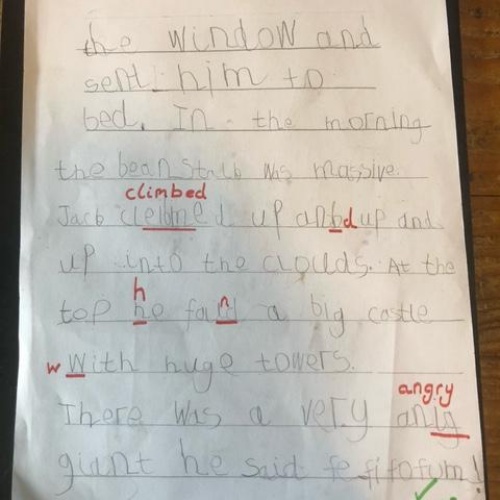 the window and
sent him to
bed. In the morning
the beanstalb was massive.
climbed
Jack up anbdup and
up into the clouds. At the
h
top he a big castle
w With huge towers.
angry
There was a very
giant he said fe fi fo fum!